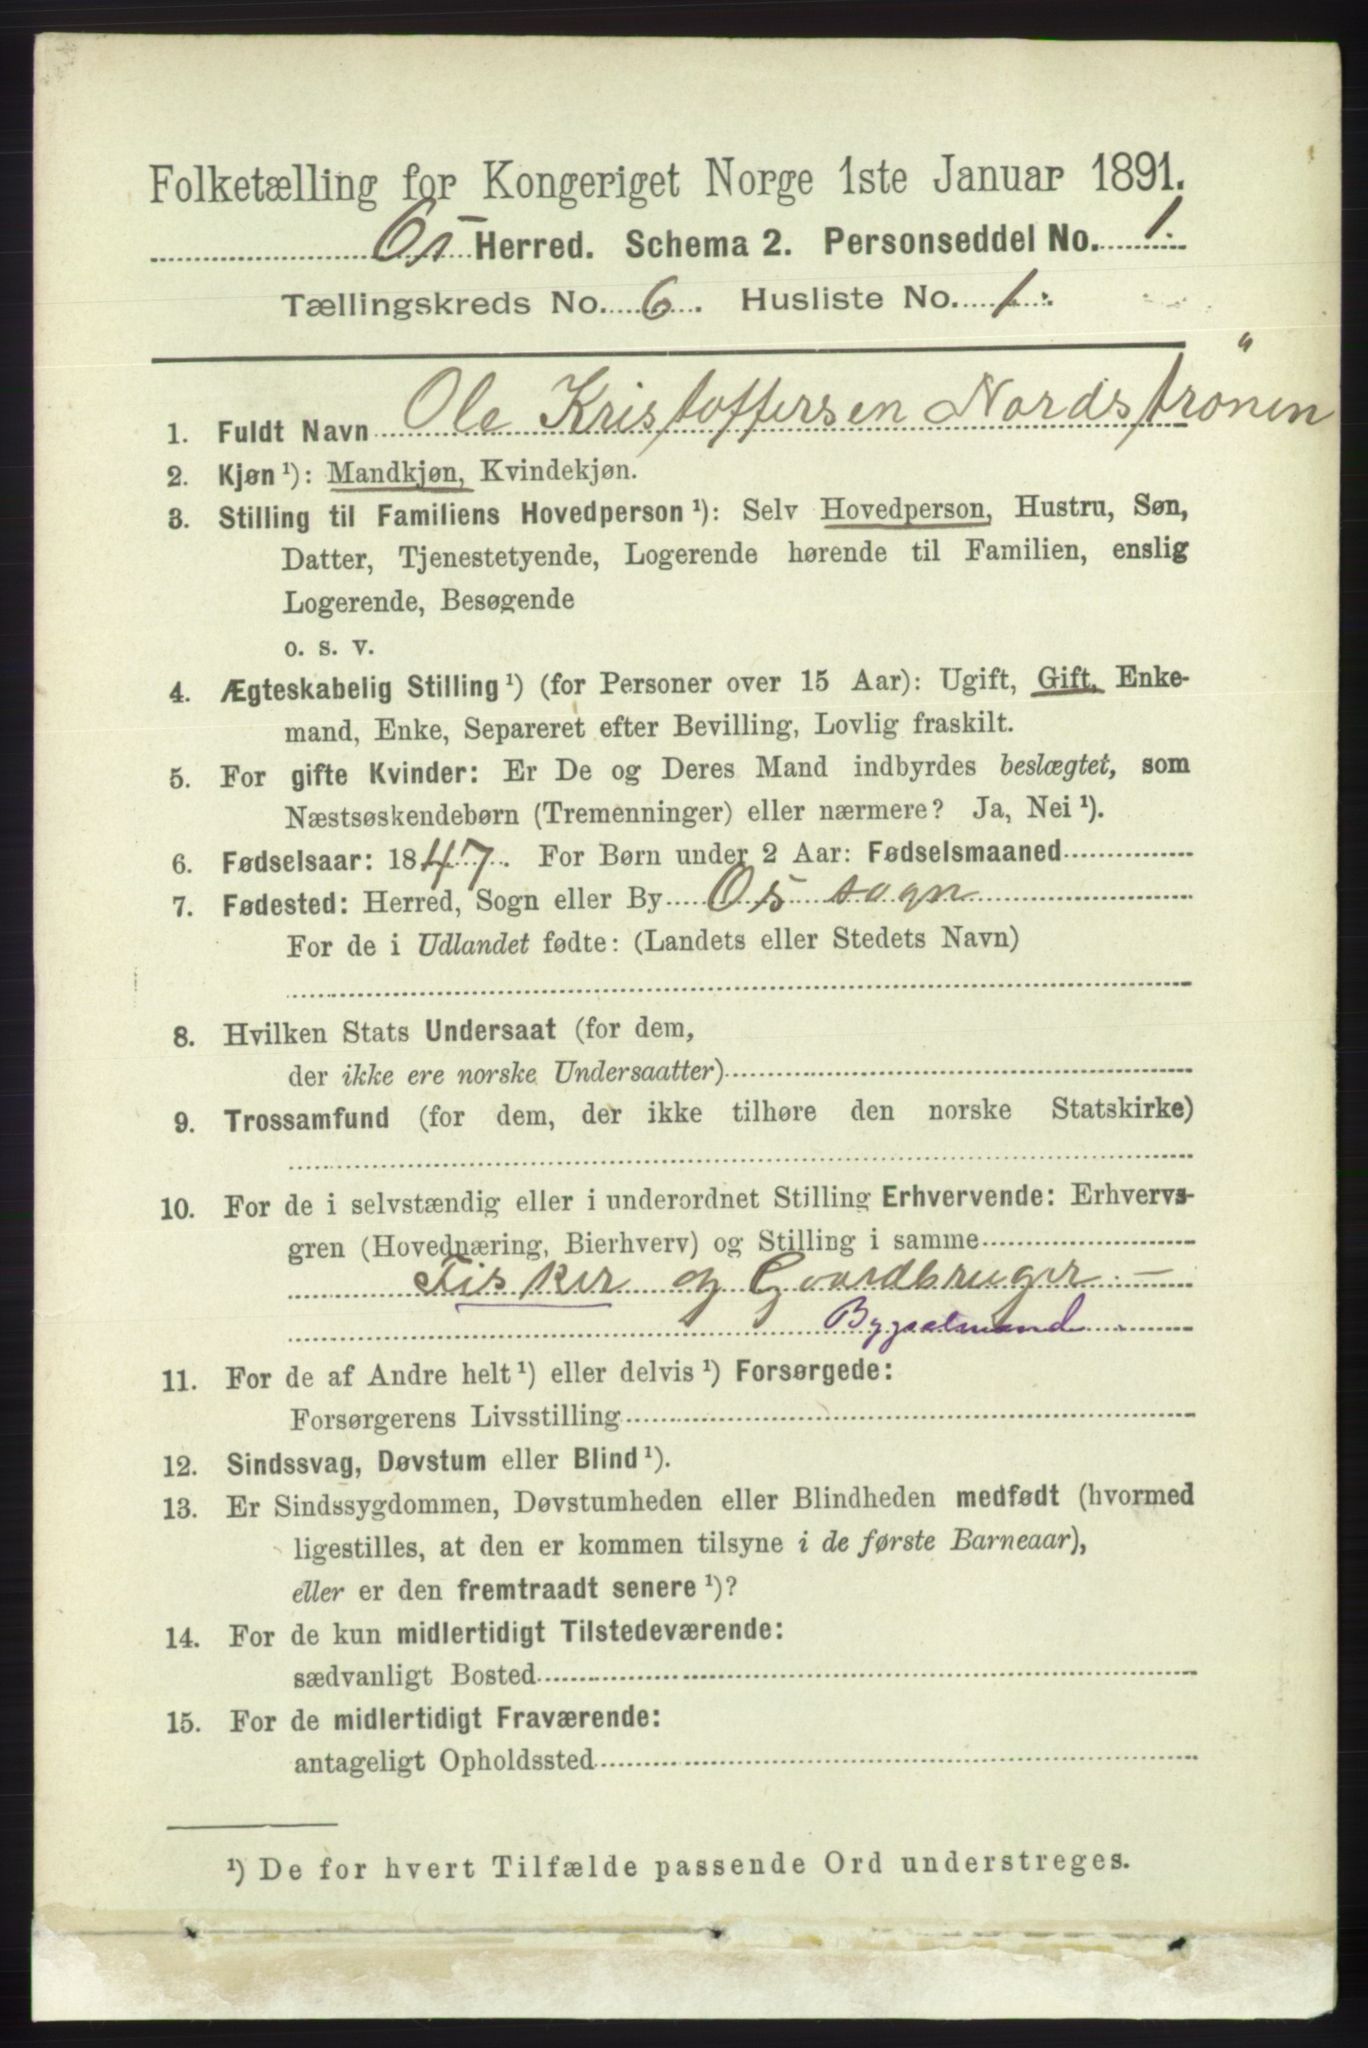 Folketælling for Kongeriget Norge 1ste Januar 1891.
Os Herred. Schema 2. Personseddel No. 1.
Tællingskreds No. 6. Husliste No. 1.
1. Fuldt Navn Ole Kristoffersen Nordströnen
2. Kjøn ¹): Mandkjøn, Kvindekjøn.
3. Stilling til Familiens Hovedperson ¹): Selv Hovedperson, Hustru, Søn,
Datter, Tjenestetyende, Logerende hørende til Familien, enslig
Logerende, Besøgende
o. s. v.
4. Ægteskabelig Stilling ¹) (for Personer over 15 Aar): Ugift, Gift, Enke-
mand, Enke, Separeret efter Bevilling, Lovlig fraskilt.
5. For gifte Kvinder: Er De og Deres Mand indbyrdes beslægtet, som
Næstsøskendebørn (Tremenninger) eller nærmere? Ja, Nei ¹).
6. Fødselsaar: 1847. For Børn under 2 Aar: Fødselsmaaned
7. Fødested: Herred, Sogn eller By Os sogn
For de i Udlandet fødte: (Landets eller Stedets Navn)
8. Hvilken Stats Undersaat (for dem,
der ikke ere norske Undersaatter)
9. Trossamfund (for dem, der ikke tilhøre den norske Statskirke)
10. For de i selvstændig eller i underordnet Stilling Erhvervende: Erhvervs-
gren (Hovednæring, Bierhverv) og Stilling i samme
Fisker og Gaardbruger. —
Bygselmand.
11. For de af Andre helt ¹) eller delvis ¹) Forsørgede:
Forsørgerens Livsstilling
12. Sindssvag, Døvstum eller Blind ¹).
13. Er Sindssygdommen, Døvstumheden eller Blindheden medfødt (hvormed
ligestilles, at den er kommen tilsyne i de første Barneaar),
eller er den fremtraadt senere ¹)?
14. For de kun midlertidigt Tilstedeværende:
sædvanligt Bosted
15. For de midlertidigt Fraværende:
antageligt Opholdssted
¹) De for hvert Tilfælde passende Ord understreges.